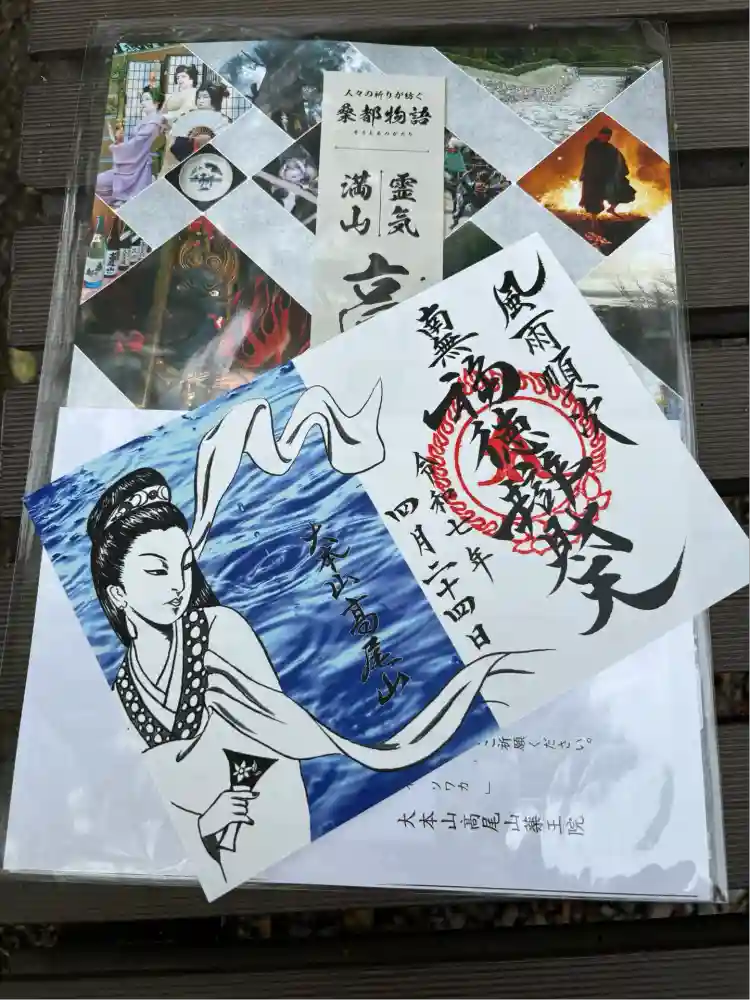 人々の祈りが紡ぐ
桑都物語
霊気
満山
高
風雨順次
南無福徳辯財天
令和七年
四月二十四日
大本山高尾山
ご祈願ください。
ソワカ」
大本山高尾山薬王院